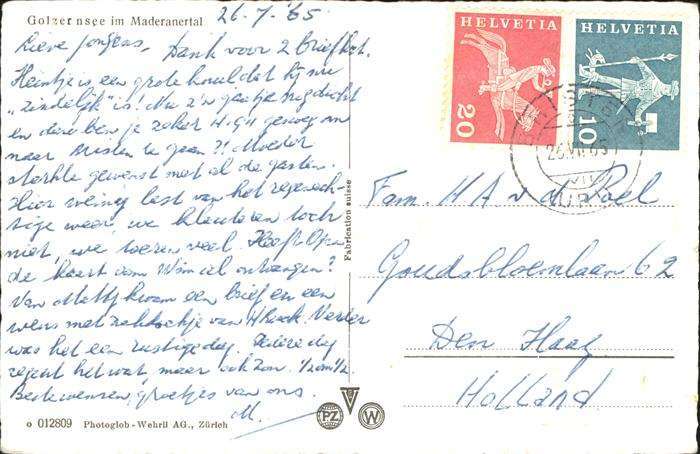 Golzernsee im Maderanertal
26.7.'65
Lieve jongens, Dank voor 2 brieften.
Heintje is een grote knul dat hij nu
"zindelijk" is! Nu z'n jasje nog dicht
en dan ben je zeker
naar Misten te gaan?! Moeder
sterkte gewenst met al de gasten.
Hier weinig last van het regenach-
tige weer, we klauteren toch
niet, we toeren veel. Heeft Opa
de kaart van Wim al ontvangen?
Van Matty kwam een brief en een
wens met zakdoekje van Verder
was het een rustige dag. Iedere dag
regent het wat maar ook zon. ½ om ½.
Beste wensen, groetjes van ons.
M.
HELVETIA
20
HELVETIA
10
Fam. H A v d Poel
Goudsbloemlaan 62
Den Haag
Holland
Fabrication suisse
o 012809 Photoglob-Wehrli AG., Zürich
PZ
W